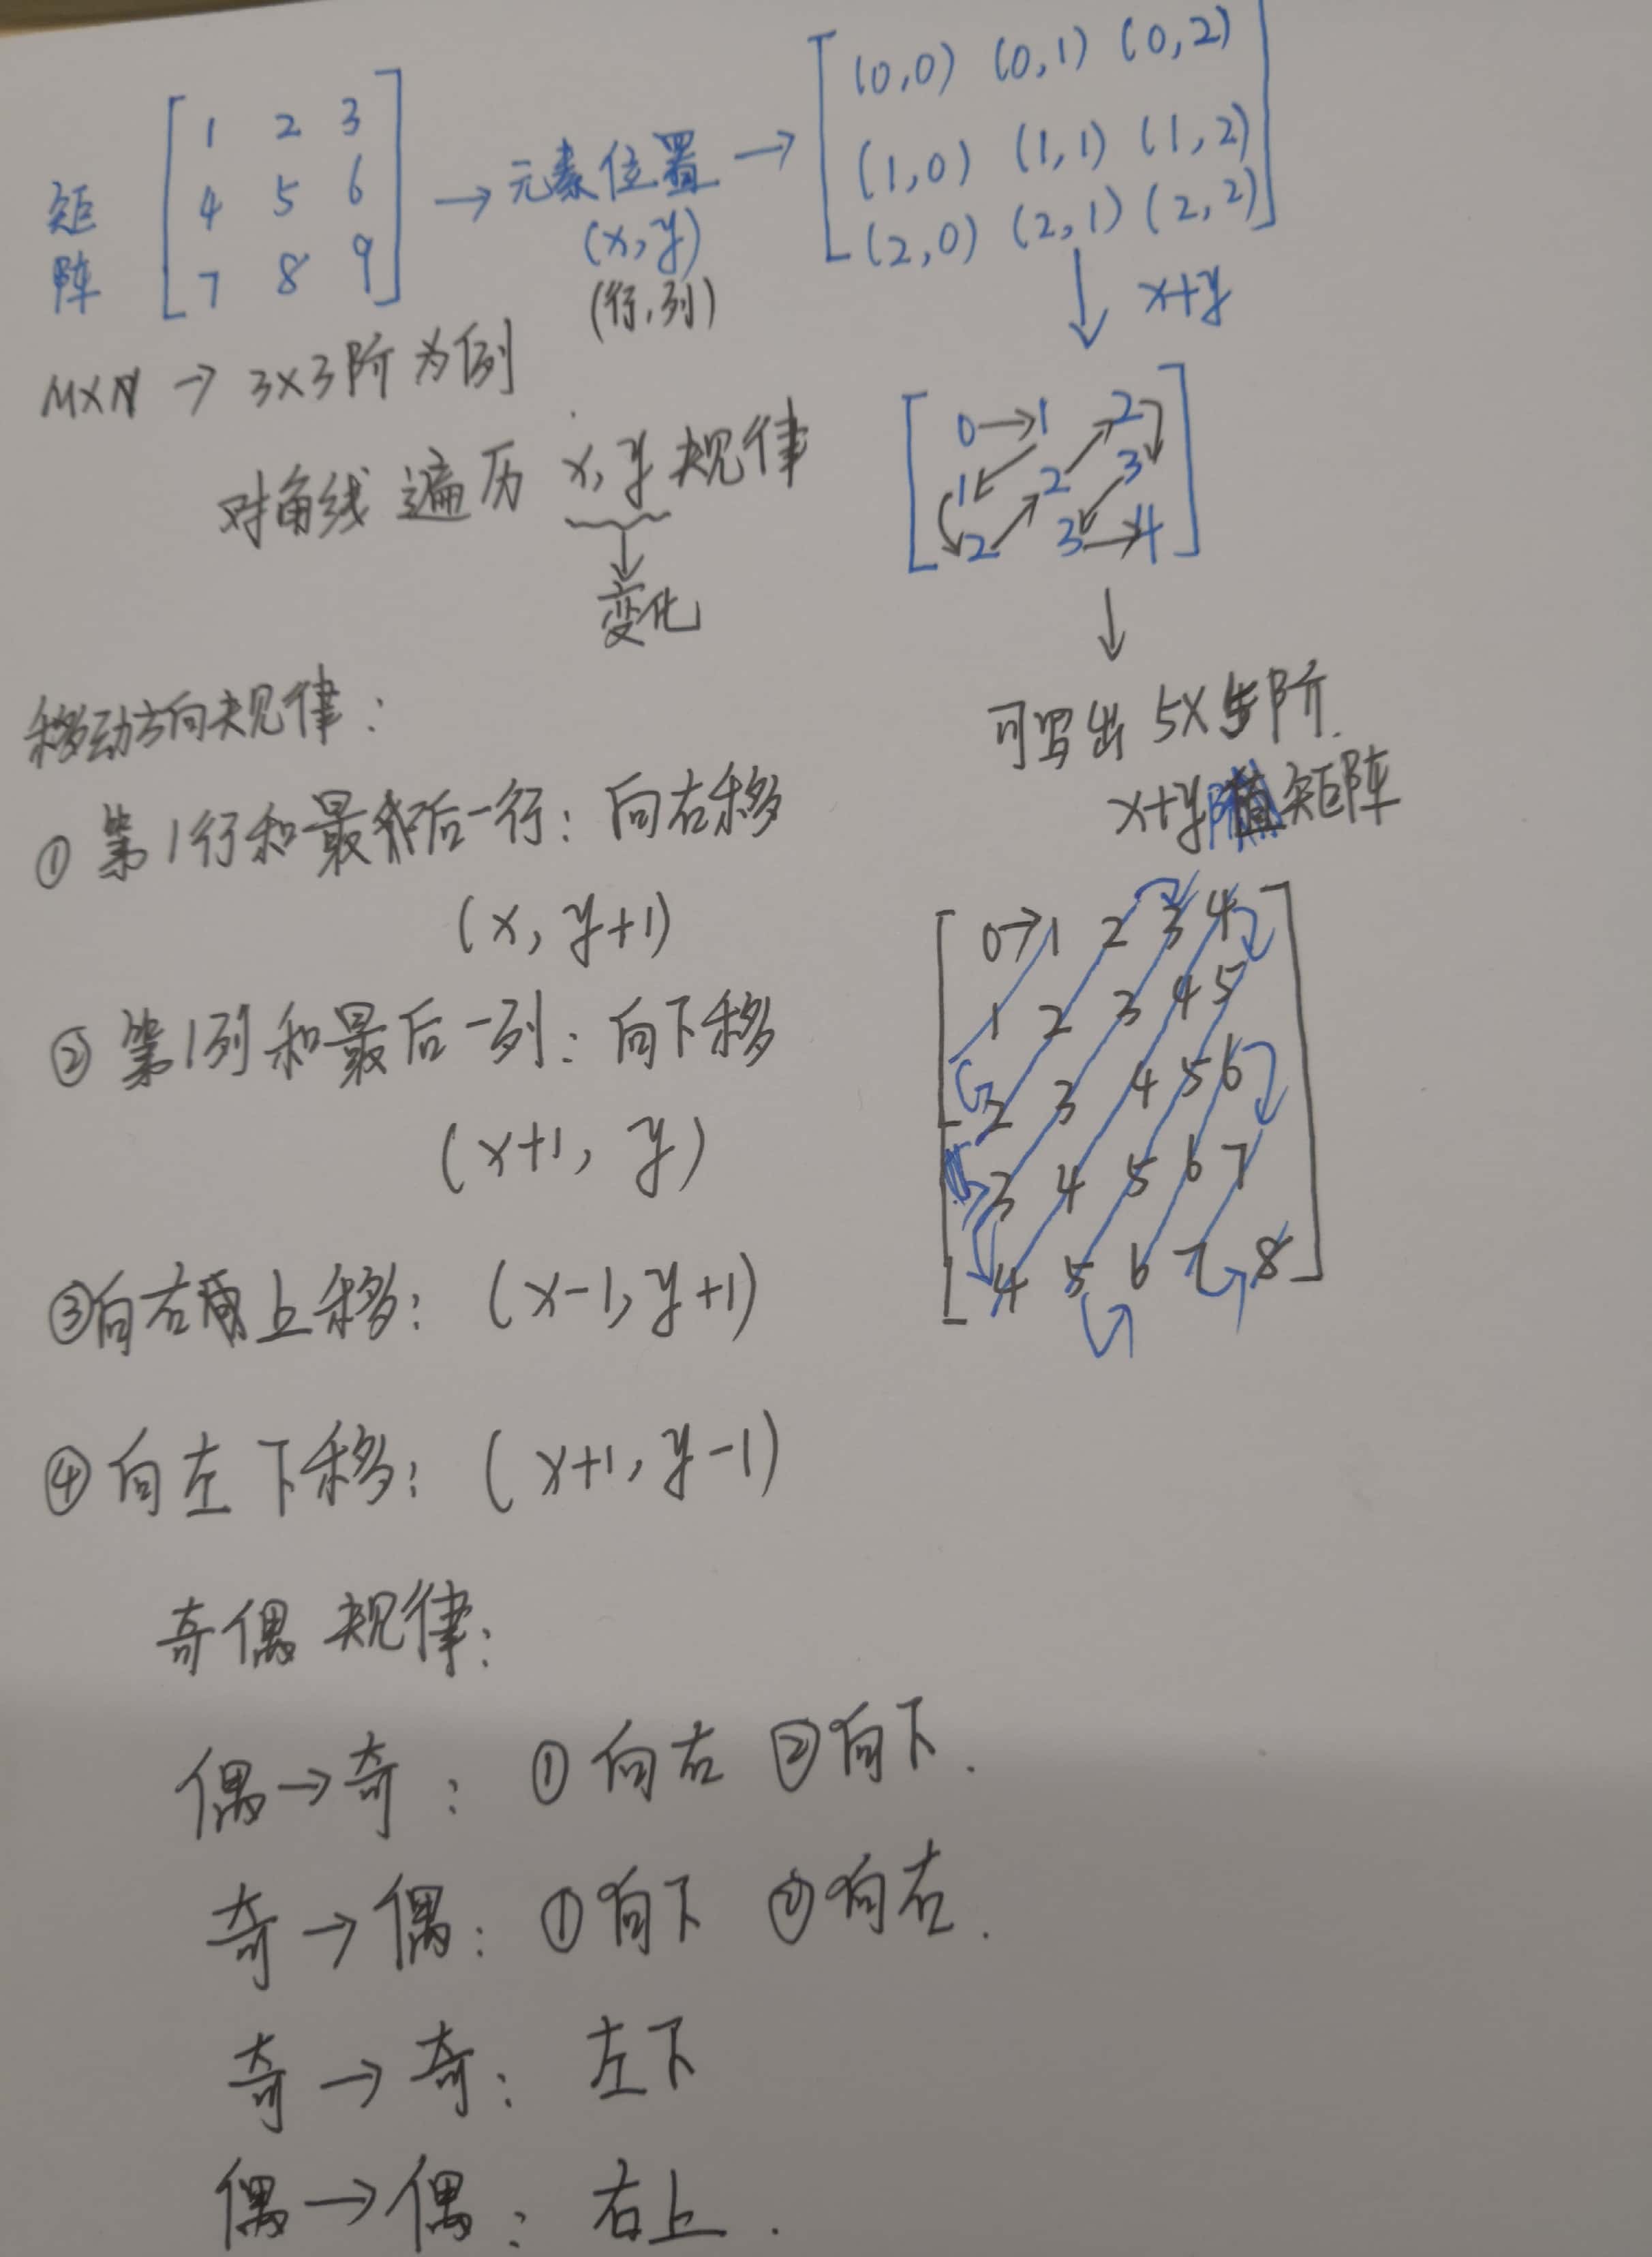 矩阵
1 2 3
4 5 6
7 8 9
→ 元素位置 →
(x,y)
(行,列)
(0,0) (0,1) (0,2)
(1,0) (1,1) (1,2)
(2,0) (2,1) (2,2)
↓ x+y
M×N → 3×3阶为例
对角线遍历 x,y 规律
↓
变化
0→1 2
1 2 3
2 3→4
↓
可写出 5×5阶.
x+y值矩阵
0→1 2 3 4
1 2 3 4 5
2 3 4 5 6
3 4 5 6 7
4 5 6 7 8
移动方向规律:
① 第1行和最后一行: 向右移
(x, y+1)
② 第1列和最后一列: 向下移
(x+1, y)
③向右上移: (x-1, y+1)
④向左下移: (x+1, y-1)
奇偶规律:
偶→奇: ①向右 ②向下.
奇→偶: ①向下 ②向右.
奇→奇: 左下
偶→偶: 右上.